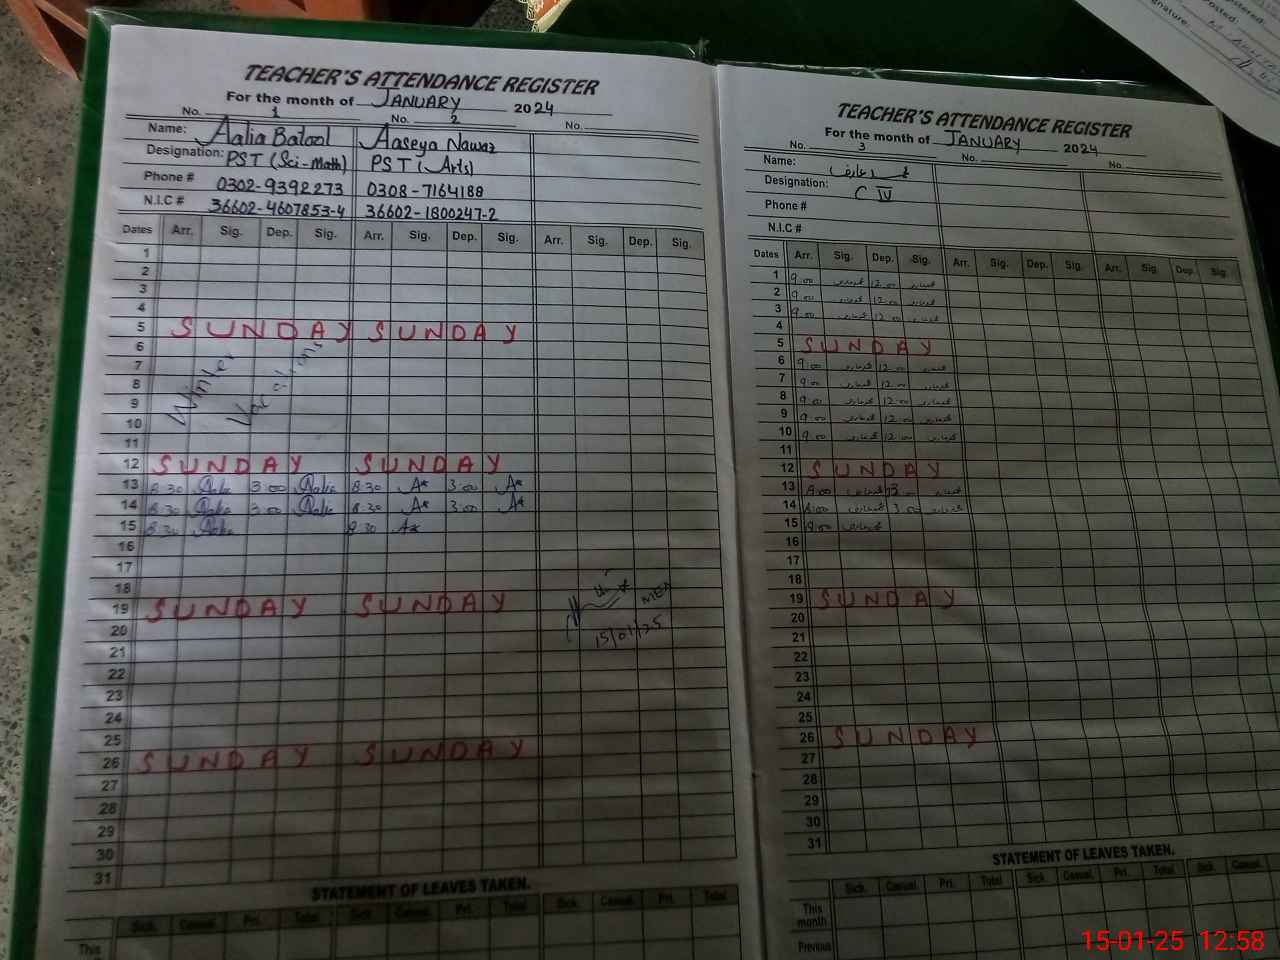 TEACHER'S ATTENDANCE REGISTER
For the month of JANUARY 2024
No. 1 No. 2 No.
Name: Aalia Batool Aaseya Nawaz
Designation: PST (Sci-Math) PST (Arts)
Phone # 0302-9392273 0308-7164188
N.I.C # 36602-4607853-4 36602-1800247-2
Dates Arr. Sig. Dep. Sig. Arr. Sig. Dep. Sig. Arr. Sig. Dep. Sig.
1
2
3
4
5 SUNDAY SUNDAY
6
7
8
9
10
Winter Vacations
11
12 SUNDAY SUNDAY
13 8:30 Aalia 3:00 Aalia 8:30 A* 3:00 A*
14 8:30 Aalia 3:00 Aalia 8:30 A* 3:00 A*
15 8:30 Aalia 8:30 A*
16
17
18
19 SUNDAY SUNDAY
MEA
15/01/25
20
21
22
23
24
25
26 SUNDAY SUNDAY
27
28
29
30
31
STATEMENT OF LEAVES TAKEN.
Sick. Casual. Pri. Total Sick. Casual. Pri. Total Sick. Casual. Pri. Total
This
TEACHER'S ATTENDANCE REGISTER
For the month of JANUARY 2024
No. 3 No. No.
Name: محمد عارف
Designation: C IV
Phone #
N.I.C #
Dates Arr. Sig. Dep. Sig. Arr. Sig. Dep. Sig. Arr. Sig. Dep. Sig.
1 9:00 12:00
2 9:00 12:00
3 9:00 12:00
4
5 SUNDAY
6 9:00 12:00
7 9:00 12:00
8 9:00 12:00
9 9:00 12:00
10 9:00 12:00
11
12 SUNDAY
13 8:00 3:00
14 8:00 3:00
15 8:00
16
17
18
19 SUNDAY
20
21
22
23
24
25
26 SUNDAY
27
28
29
30
31
STATEMENT OF LEAVES TAKEN.
Sick. Casual. Pri. Total Sick. Casual. Pri. Total Sick. Casual.
This month
Previous
15-01-25 12:58